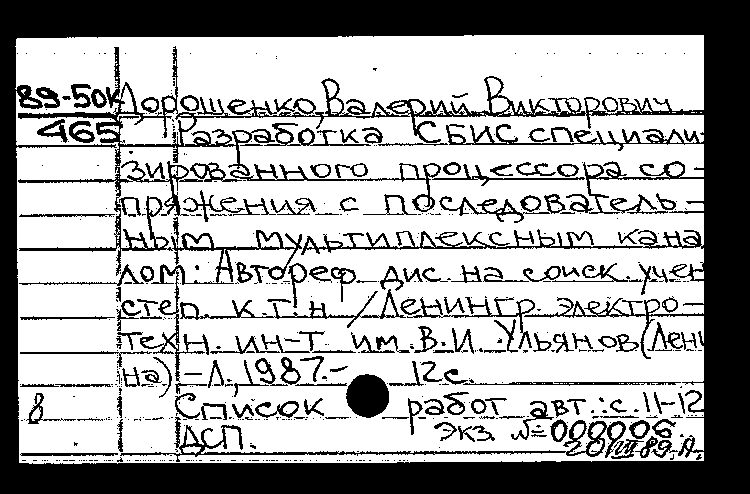 89-50к Дорошенко, Валерий Викторович
465 Разработка СБИС специали-
зированного процессора со-
пряжения с последователь-
ным мультиплексным кана
лом: Автореф. дис. на соиск. учен
степ. к.т.н / Ленингр. электро-
техн. ин-т им. В.И. Ульянов (Лени
на) - Л., 1987.- 12 с.
8 Список работ авт.: с. 11-12
ДСП. Экз. №=000006.
20/VIII 89. А.